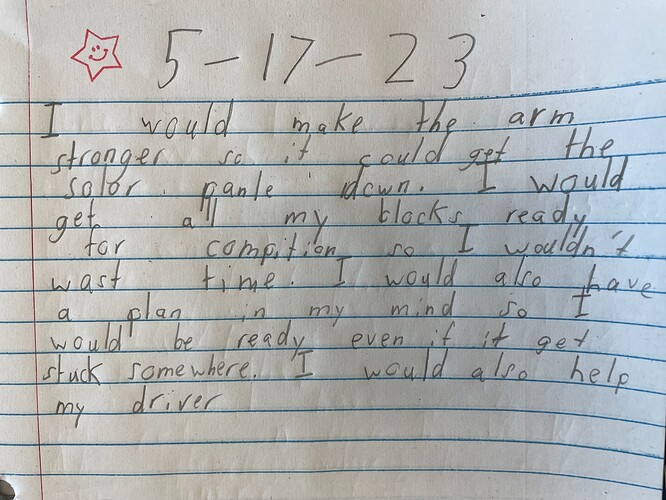 5-17-23
I would make the arm
stronger so it could get the
solor panle down. I would
get all my blocks ready
for compition so I wouldn't
wast time. I would also have
a plan in my mind so I
would be ready even if it get
stuck somewhere. I would also help
my driver